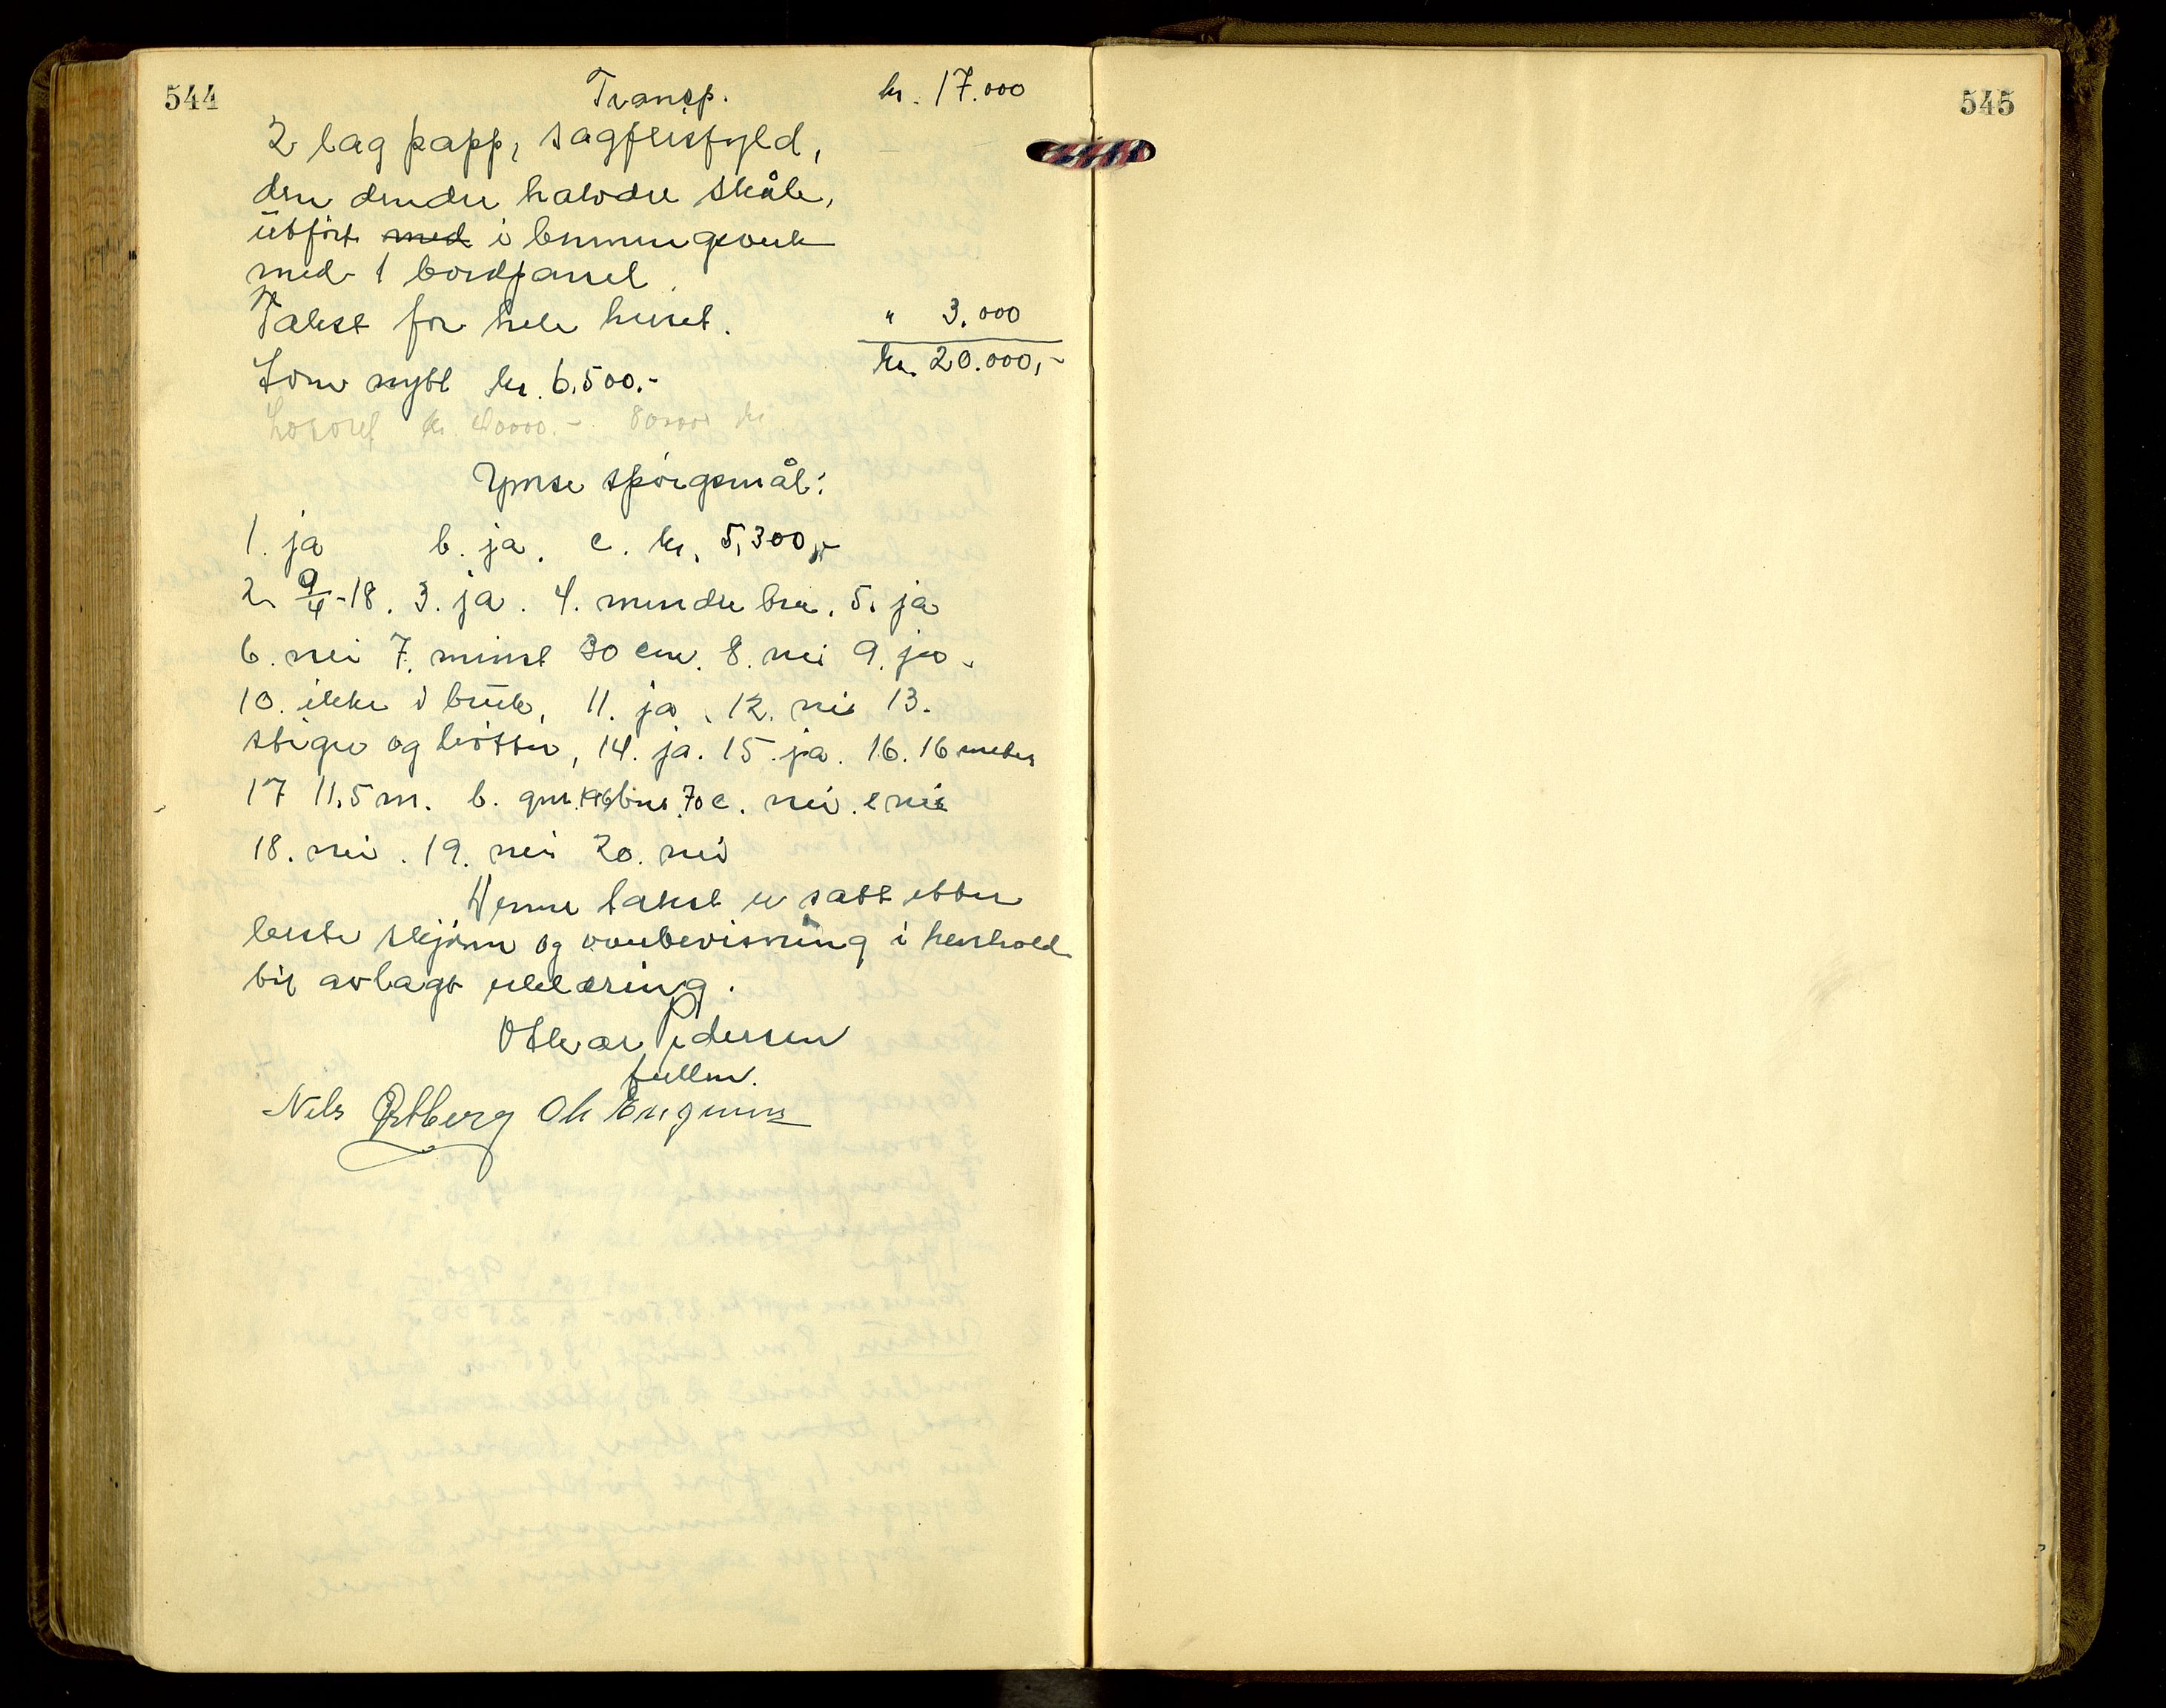 544
Transp. kr. 17.000
2 lag papp, sagflisfyld,
den andre halvdel skåle,
utført med i binningsverk
med 1 bordpanel.
Takst for hele huset. " 3.000
kr. 20.000,-
Som nytt kr. 6.500.-
kr. 40000.- 80000 kr
Ymse spørgsmål:
1. ja b. ja. c. kr. 5,300,-
2. 9/4-18. 3. ja. 4. mindre bra. 5. ja
6. nei 7. minst 30 cm. 8. nei 9. ja.
10. ikke i bruk, 11. ja. 12. nei 13.
stiger og bøtter, 14. ja. 15. ja. 16. 16 meter
17 11,5 m. b. c. nei. e nei
18. nei. 19. nei 20. nei
Denne takst er satt etter
beste skjønn og overbevisning i henhold
til avlagt erklæring.
Othar Pedersen
fullm.
Nils Østberg Ole Engmun
545